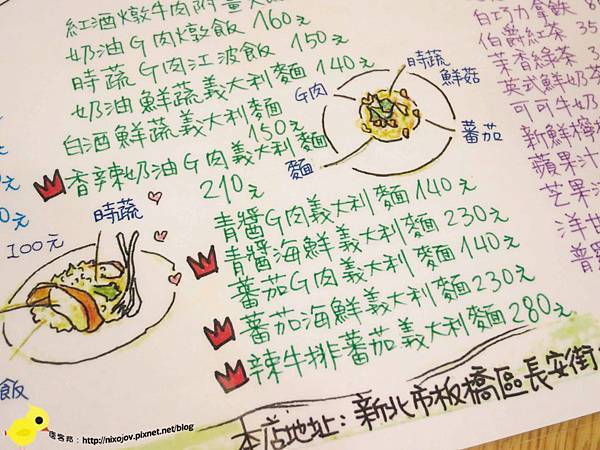 紅酒燉牛肉附
奶油G肉燉飯 160元
時蔬G肉江波飯 150元
奶油鮮蔬義大利麵 140元
白酒鮮蔬義大利麵
150元
香辣奶油G肉義大利麵
210元
青醬G肉義大利麵 140元
青醬海鮮義大利麵 230元
蕃茄G肉義大利麵 140元
蕃茄海鮮義大利麵 230元
辣牛排蕃茄義大利麵 280元
G肉
時蔬
鮮菇
蕃茄
麵
時蔬
100元
飯
白巧力拿鐵
伯爵紅茶 35
茉香綠茶 3
英式鮮奶茶
可可牛奶
新鮮檸檬
蘋果汁
芒果汁
本店地址：新北市板橋區長安街
痞客邦：http://nixojov.pixnet.net/blog